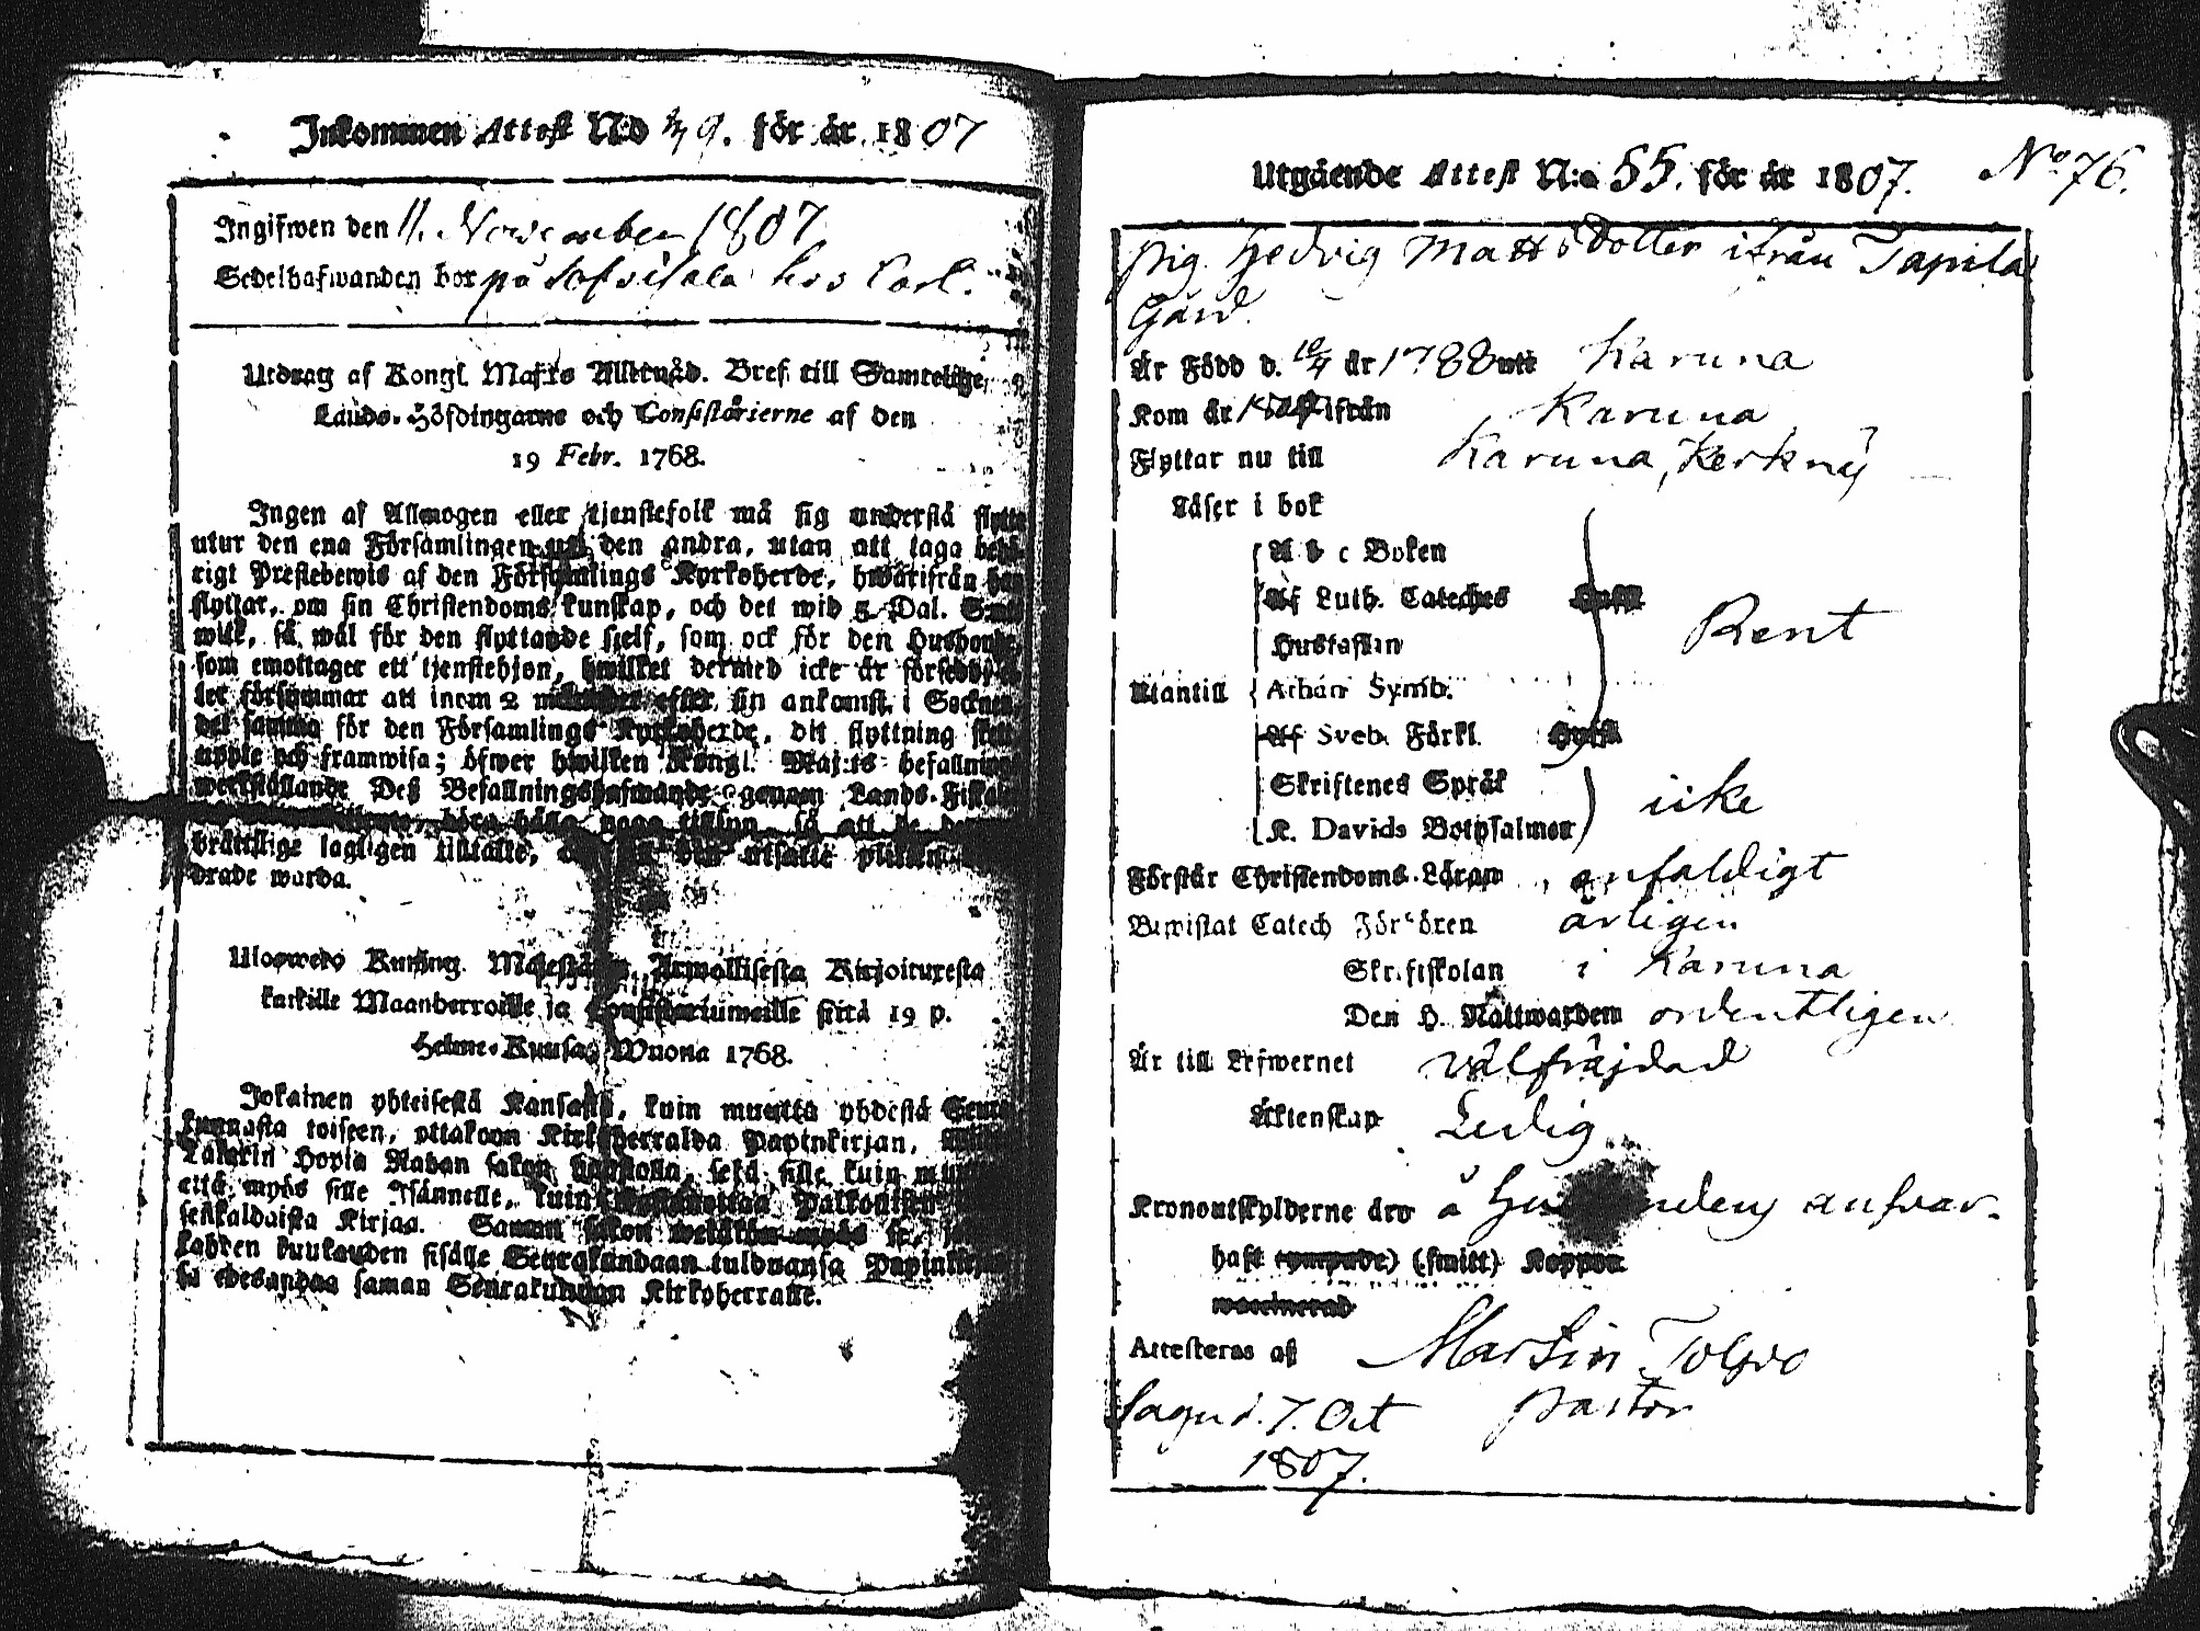 Inkommen Attest N:o 9. för år 1807
Ingifwen den 11. November 1807
Sedelhafwanden bor på hos Carl.
Utdrag af Kongl. Maj:ts Allernåd. Bref till Samtelige
Lands-Höfdingarne och Consistorierne af den
19 Febr. 1768.
Ingen af Allmogen eller tjenstefolk må sig understå flytta
utur den ena Församlingen uti den andra, utan att taga behö-
rigt Prestebewis af den Församlings Kyrkoherde, hwarifrån han
flyttar, om sin Christendoms kunskap, och det wid 5 Dal. S:mt
wite, så wäl för den flyttande sjelf, som ock för den Husbonde,
som emottager ett tjenstehjon, hwilket dermed icke är försedt,
ler försummar att inom 2 månader efter sin ankomst i Socknen
det samma för den Församlings Kyrkoherde, dit flyttning sker
uppte och framwisa; öfwer hwilken Kongl. Maj:ts befallning
werkställande Deß Befallningshafwande genom Lands-Fiskal
böra hålla noga tillsyn, så att de
bråttslige lagligen tilltalte, utsatte plikten
drade warda.
Uloswedo Kuning. Majestätin Armollisesta Kirjoituxesta
kaikille Maanherroille ja Consistoriumeille siitä 19 p.
Helme-Kuusa Wuona 1768.
Jokainen yhteisestä Kansasta, kuin muutta yhdestä Seura-
kunnasta toiseen, ottakoon Kirkkoherralda Papinkirjan,
Talarin Hopia Rahan sakon haastolla, sekä sille kuin muutta
että myös sille Isännelle, kuin Palkollisen
senkaldaista Kirjaa. Saman sakon wetäkön myös se, jo
kahden kuukauden sisälle Seurakundaan tulduansa Papinkirjan
sa edesandaa saman Seurakunnan Kirkoherralle.
Utgående Attest N:o 55. för år 1807. No 76.
Pig. Hedvig Mattsdotter ifrån Tapila
Gård.
Är Född d. 10/4 år 1788 uti Karuna
Kom år ifrån Karuna
Flyttar nu till Karuna, Kerkny
Läser i bok
A b c Boken
Af Luth. Cateches
Hustaflan Rent
Utantill Athan Symb.
Af Sveb. Förkl.
Skriftenes Språk
K. Davids Botpsalmer icke
Förstår Christendoms-Läran enfaldigt
Bewistat Catech Förhören årligen
Skriftskolan i Karuna
Den H. Nattwarden ordentligen
Är till Lefwernet välfräjdad
Äktenskap Ledig
Kronoutskylderne äro å Husbondens ansvar.
haft (ympade) (smitt) Koppor
waccinerad
Attesteras af Martin Tolpo
Sagu d. 7. Oct Pastor
1807.